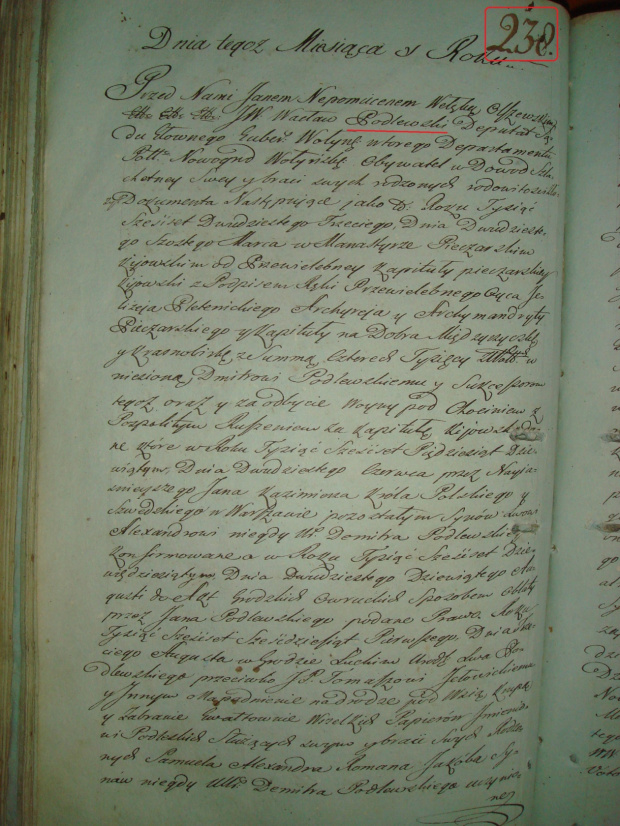 238.
Dnia tegoż Miesiąca y Roku
Przed Nami Janem Nepomucenem
JW Wacław Podlewski Deputat Są-
du Głownego Guber Wołyn wtorego Departamentu
Pttu Nowogrd Wołyńskie Obywatel w Dowod Szla-
chetney Swey y braci swych rodzonych rodowitości
Dokumenta Następujące jako to: Roku Tysiąć
Sześćset Dwudziestego Trzeciego, Dnia Dwudzieste-
go Szostego Marca w Manastyrze Pieczarskim
Kijowskim od Przewielebney Kapituły pieczarskiey
Kijowski z Podpisem Ręki Przewielebnego Oyca Je-
lizeja Pletenickiego Archyreja y Archymandryty
Pieczarskiego y Kapituły na Dobra
y Krasnolinkę ze Summą Czterech Tysięcy w
niesioną Dmitrowi Podlewskiemu y Sukcessorom
tegoż oraz y za odbycie Woyny pod Chocimem z
Pospolitym Ruszeniem za Kapitułę Kijowską
ne które w Roku Tysiąć Sześćset Pięćdziesiąt Dzie-
wiątym, Dnia Dwudziestego Czerwca przez Nayja-
snieyszego Jana Kazimierza Króla Polskiego y
Szwedzkiego w Warszawie pozostałym Synom
Alexandrowi niegdy Ur. Demitra Podlewskie
Konfirmowane a w Roku Tysiąć Sześćset Dzie-
więdziesiątym Dnia Dwudziestego Dziewiątego Au-
gusti do Akt Grodzkich Owruckich Sposobem Oblaty
przez Jana Podlewskiego podane Prawo, Roku
Tysiąć Sześćset Sześćdziesiąt Pierwszego, Dnia
ciego Augusta w Grodzie Łuckim Lwa Po-
dlewskiego przeciwko J.P. Tomaszowi Jełowickiemu
y Innym o Napadnienie na drodze pod Wsią
y Zabranie Gwałtownie Wszelkich Papierów Imienio-
wi Podleskich Służących samym y braci Swych Rodzo-
nych Samuela Alexandra Romana Jakóba Sy-
nów niegdy Ur Demitra Podlewskiego uczynio-
ne